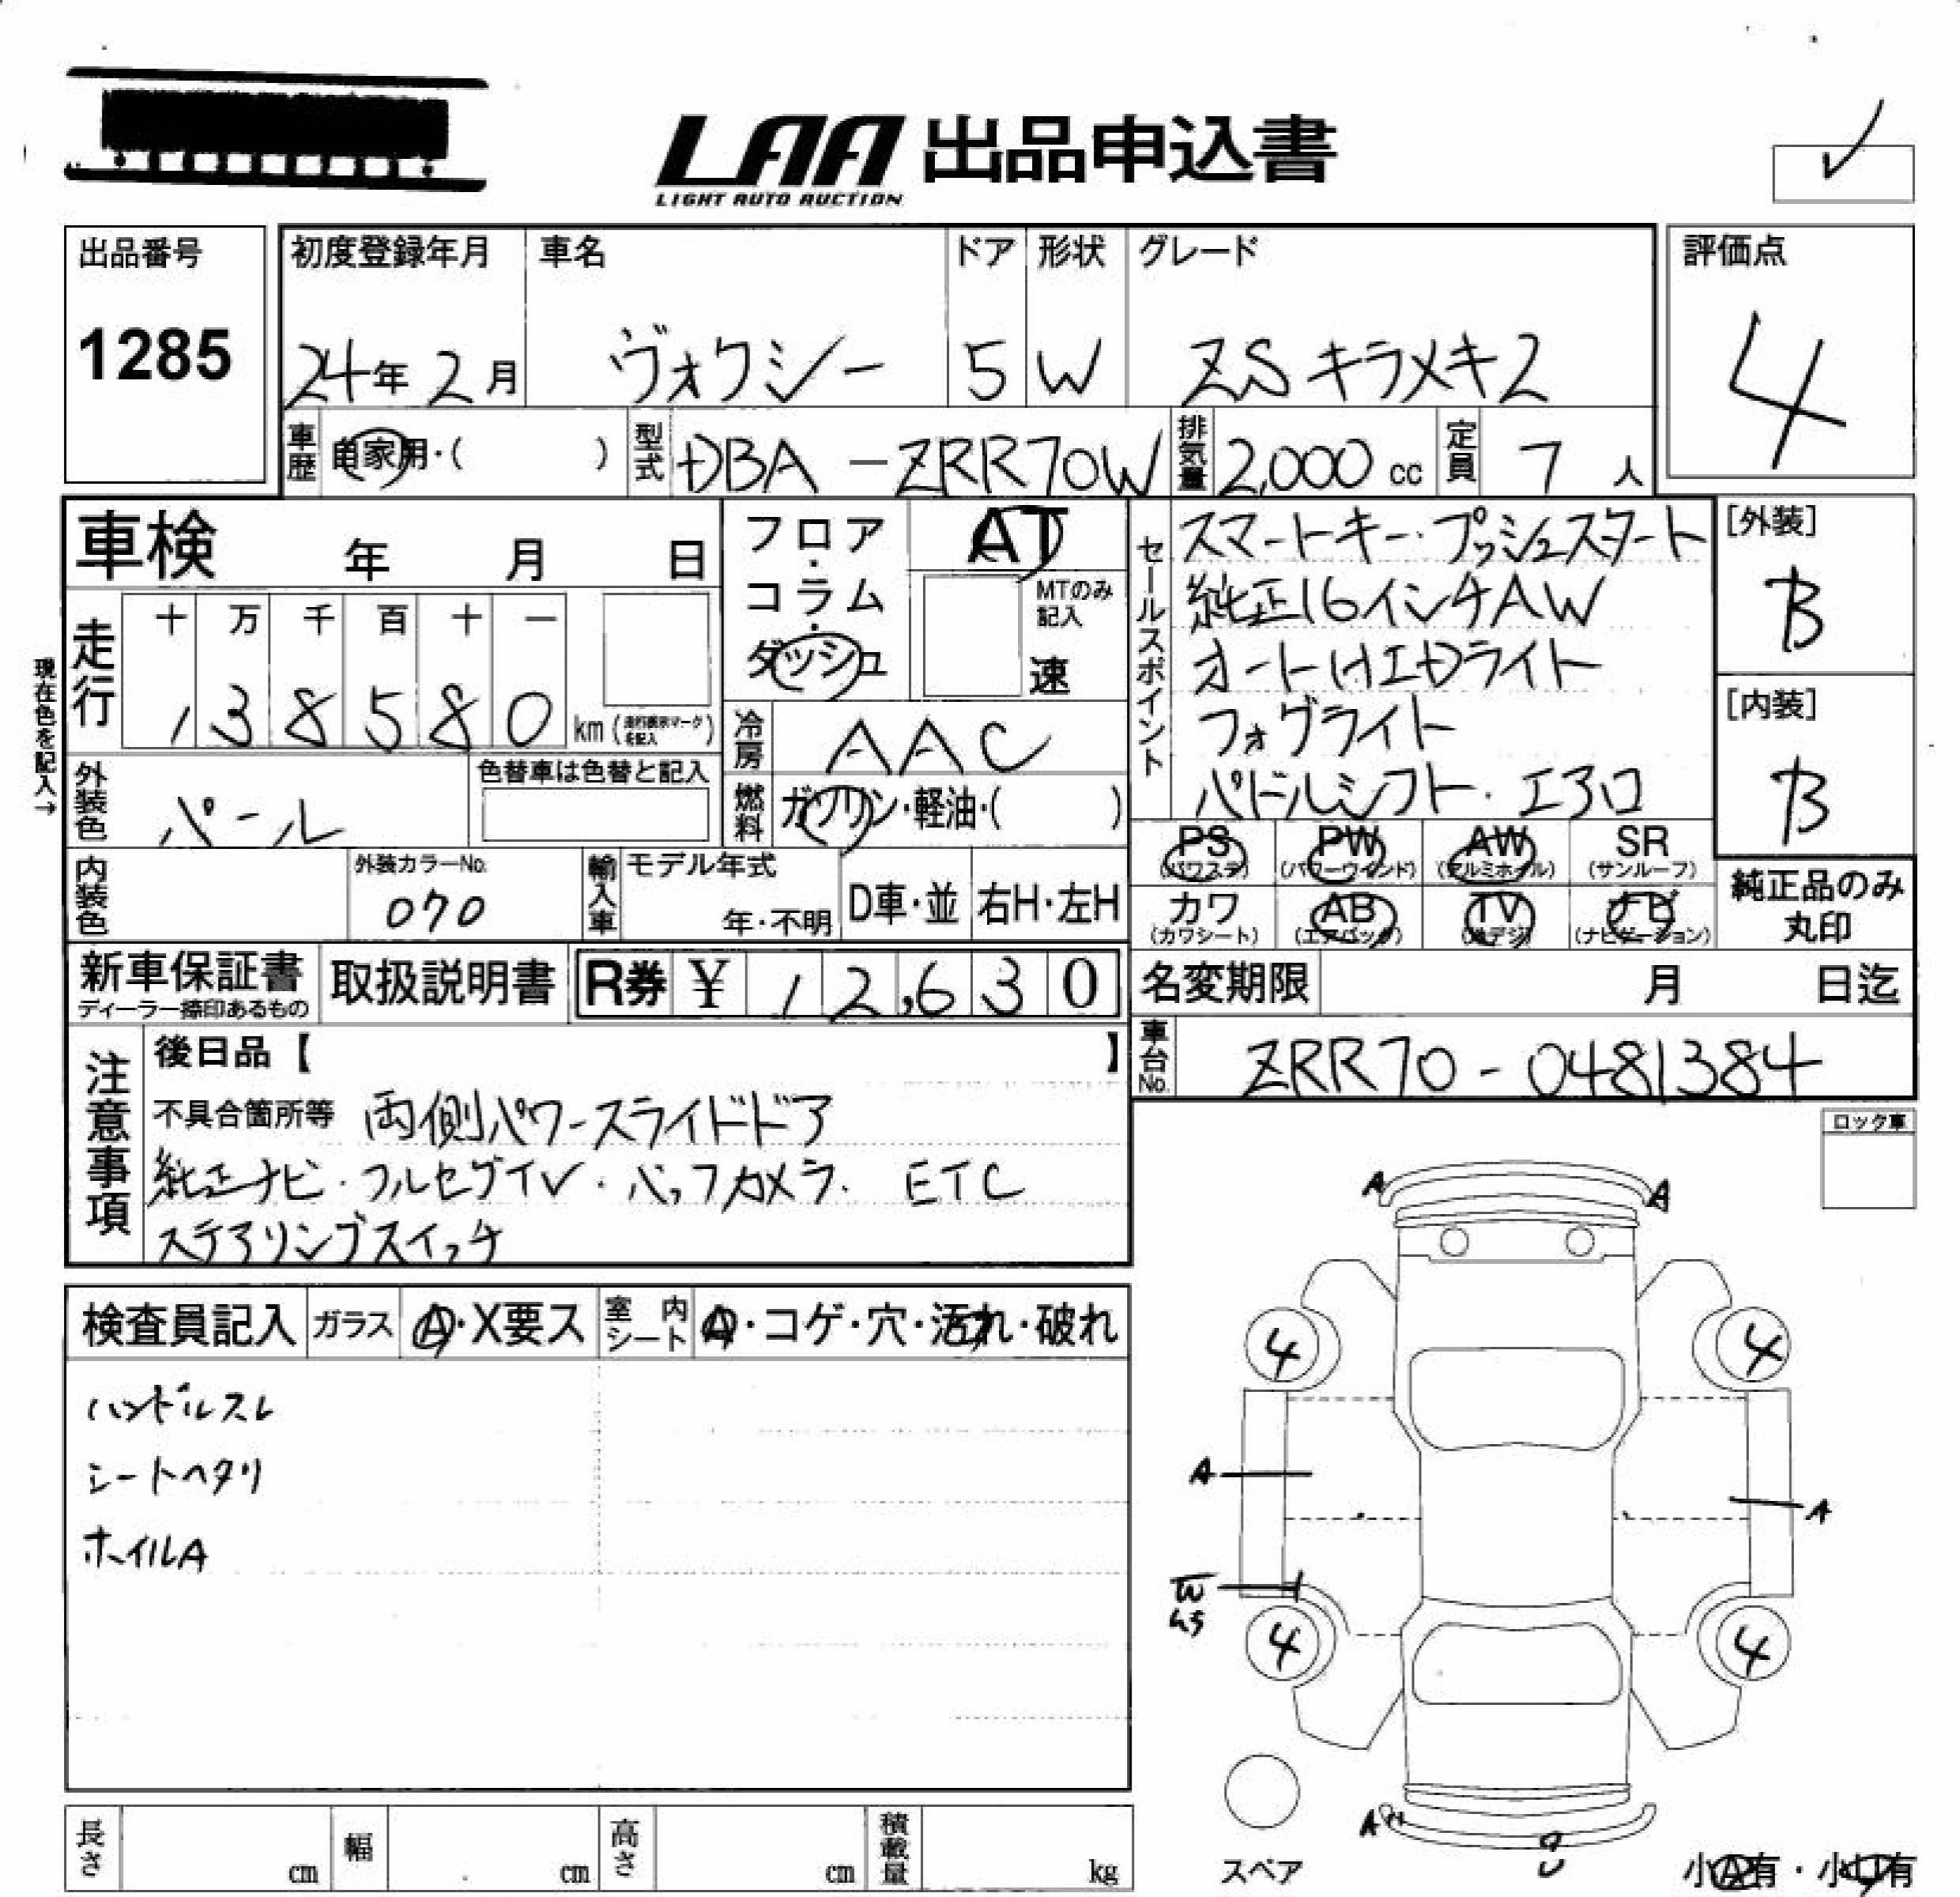 LAA 出品申込書
LIGHT AUTO AUCTION
出品番号
1285
初度登録年月
24年 2月
車名
ヴォクシー
ドア
5
形状
W
グレード
ZS キラメキ2
評価点
4
車歴 自家用・( )
型式 DBA-ZRR70W
排気量 2,000 cc
定員 7 人
車検 年 月 日
フロア・コラム・ダッシュ
AT
MTのみ記入
速
セールスポイント
スマートキー・プッシュスタート
純正16インチAW
オートHIDライト
フォグライト
パドルシフト・エアロ
[外装]
B
[内装]
B
現在色を記入→
走行
十 万 千 百 十 一
1 3 8 5 8 0 km (走行表示マークを記入)
冷房 AAC
外装色 パール
色替車は色替と記入
燃料 ガソリン・軽油・( )
PS (パワステ) PW (パワーウインド) AW (アルミホイル) SR (サンルーフ)
カワ (カワシート) AB (エアバック) TV (地デジ) ナビ (ナビゲーション)
純正品のみ
丸印
内装色
外装カラーNo.
070
輸入車 モデル年式
年・不明
D車・並 右H・左H
新車保証書
ディーラー捺印あるもの
取扱説明書
R券 ¥ 12,630
名変期限 月 日迄
車台No. ZRR70-0481384
注意事項
後日品【 】
不具合箇所等 両側パワースライドドア
純正ナビ・フルセグTV・バックカメラ・ETC
ステアリングスイッチ
ロック車
検査員記入 ガラス A・X要ス 室内シート A・コゲ・穴・汚れ・破れ
ハンドルスレ
シートヘタリ
ホイルA
A A
4 4
A
A
W
4 4
A
スペア
小A有・小U有
長さ cm 幅 cm 高さ cm 積載量 kg